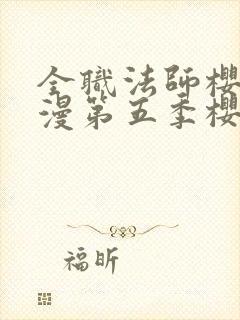 全職法師櫻
漫第五季櫻
福昕